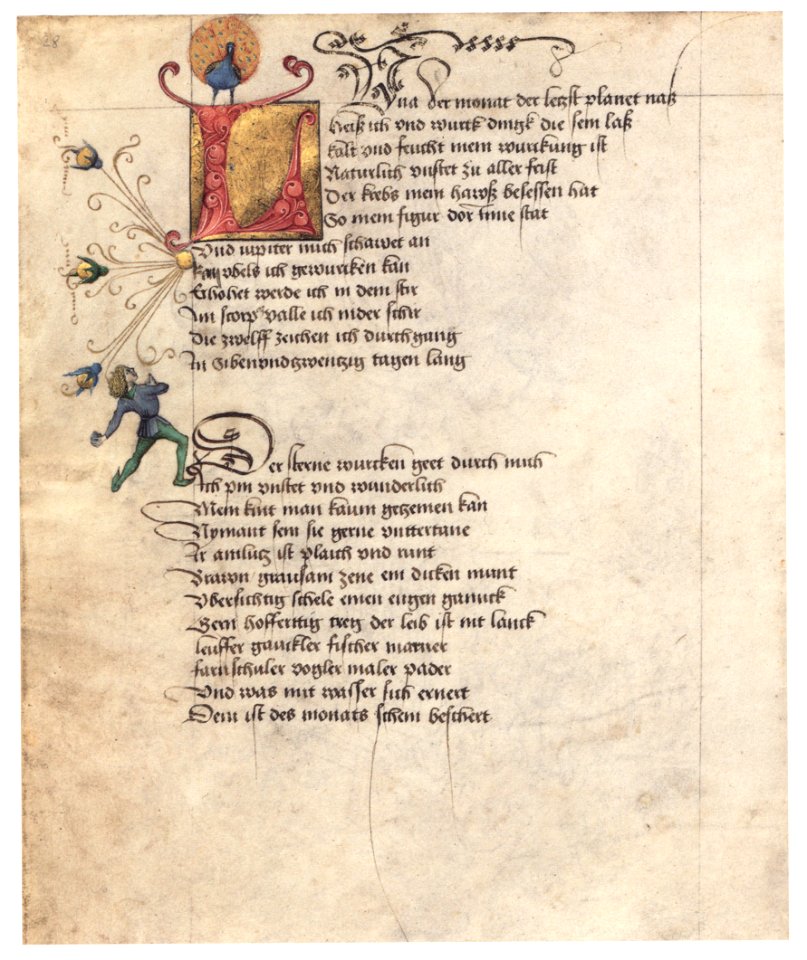 28
LVna der monat der letzst planet naß
Heiß ich vnd wurck dingk die sein laß
kalt vnd feucht mein wurckung ist
Naturlich vnstet zu aller frist
Der krebs mein hawß besessen hat
So mein figur dor jnne stat
Vnd iupiter mich schawet an
kain vbels ich gewurcken kan
Erhohet werde ich in dem stir
Im scorp valle ich nider schir
die zwelff zeichen ich durchgang
In Sibenvndtzwentzig tagen lang
Der sterne wurcken geet durch mich
Ich pin vnstet vnd wunderlich
Mein kint man kaum getzemen kan
Nymant sein sie gerne vnttertane
Ir antlutz ist plaich vnd runt
Brawn grausam zene ein dicken munt
Vbersichtig schele einen engen ganck
Gern hoffertig treg der leib ist nit lanck
leuffer gauckler fischer marner
farnschuler vogler maler pader
Vnd was mit wasser sich ernert
Dem ist des monats schein beschert